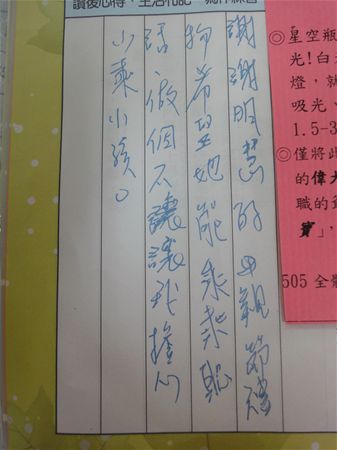 讀後心得、生活札記、寫作練習
謝謝明慧的母親節禮
物希望她能乖乖聽
話、做個不讓讓我擔心
小乖小孩。
◎星空瓶
光!白
燈,就
吸光、
1.5-3
◎僅將此
的偉大
職的
寶」,
505 全體